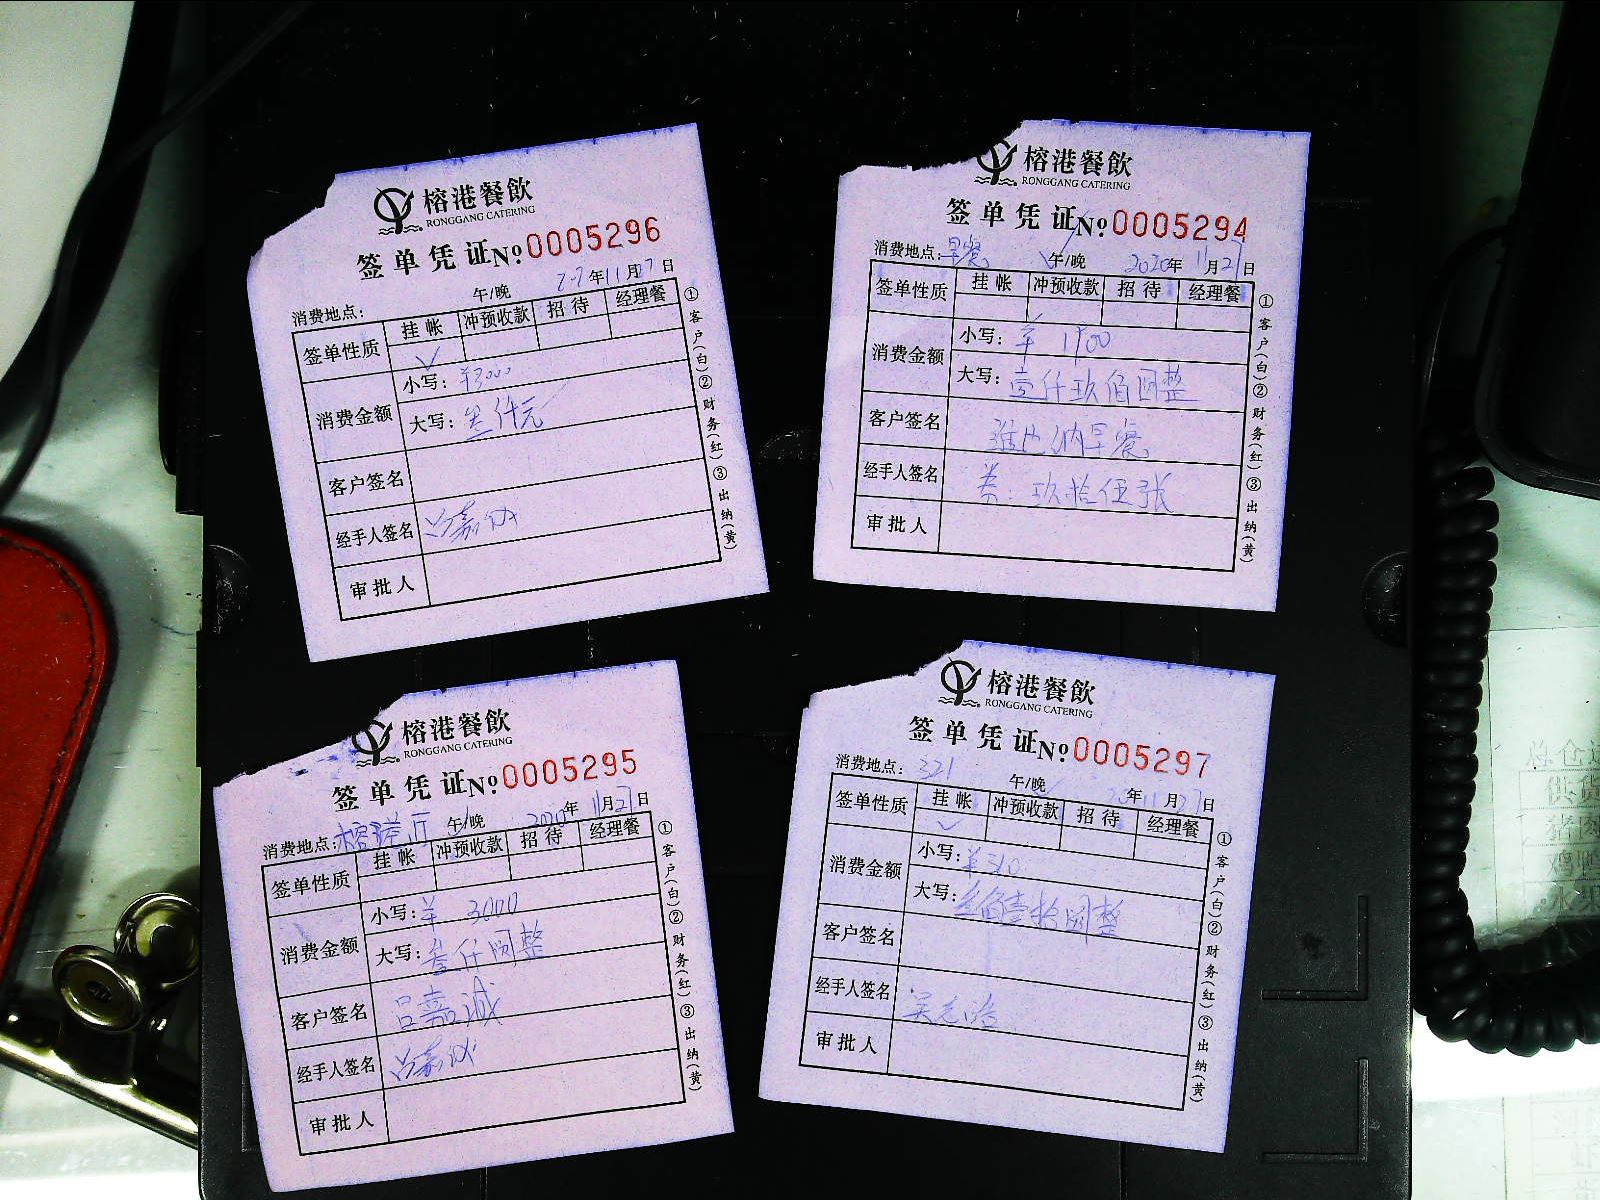 榕港餐飲
RONGGANG CATERING
签单凭证 No 0005296
年11月27日
消费地点: 午/晚
签单性质 挂帐 冲预收款 招待 经理餐
✓
消费金额 小写: ¥3000
大写: 叁仟元
客户签名
经手人签名 吕嘉诚
审批人
①客户(白)②财务(红)③出纳(黄)
榕港餐飲
RONGGANG CATERING
签单凭证 No 0005294
消费地点: 早餐 午/晚 2020年11月27日
签单性质 挂帐 冲预收款 招待 经理餐
消费金额 小写: ¥ 1900
大写: 壹仟玖佰圆整
客户签名 维也纳早餐
经手人签名 券: 玖拾伍张
审批人
①客户(白)②财务(红)③出纳(黄)
榕港餐飲
RONGGANG CATERING
签单凭证 No 0005295
消费地点: 午/晚 2020年11月27日
签单性质 挂帐 冲预收款 招待 经理餐
消费金额 小写: ¥ 3000
大写: 叁仟圆整
客户签名 吕嘉诚
经手人签名 吕嘉诚
审批人
①客户(白)②财务(红)③出纳(黄)
榕港餐飲
RONGGANG CATERING
签单凭证 No 0005297
消费地点: 321 午/晚 年11月27日
签单性质 挂帐 冲预收款 招待 经理餐
✓
消费金额 小写: ¥310
大写: 叁佰壹拾圆整
客户签名
经手人签名
审批人
①客户(白)②财务(红)③出纳(黄)
供货
猪肉
水果